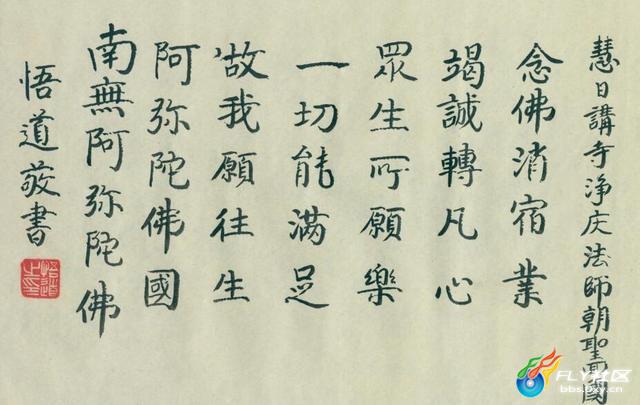 慧日講寺淨庆法師朝聖
念佛消宿業
竭誠轉凡心
眾生所願樂
一切能滿足
故我願往生
阿弥陀佛國
南無阿弥陀佛
悟道敬書
悟道之印
FLY社区